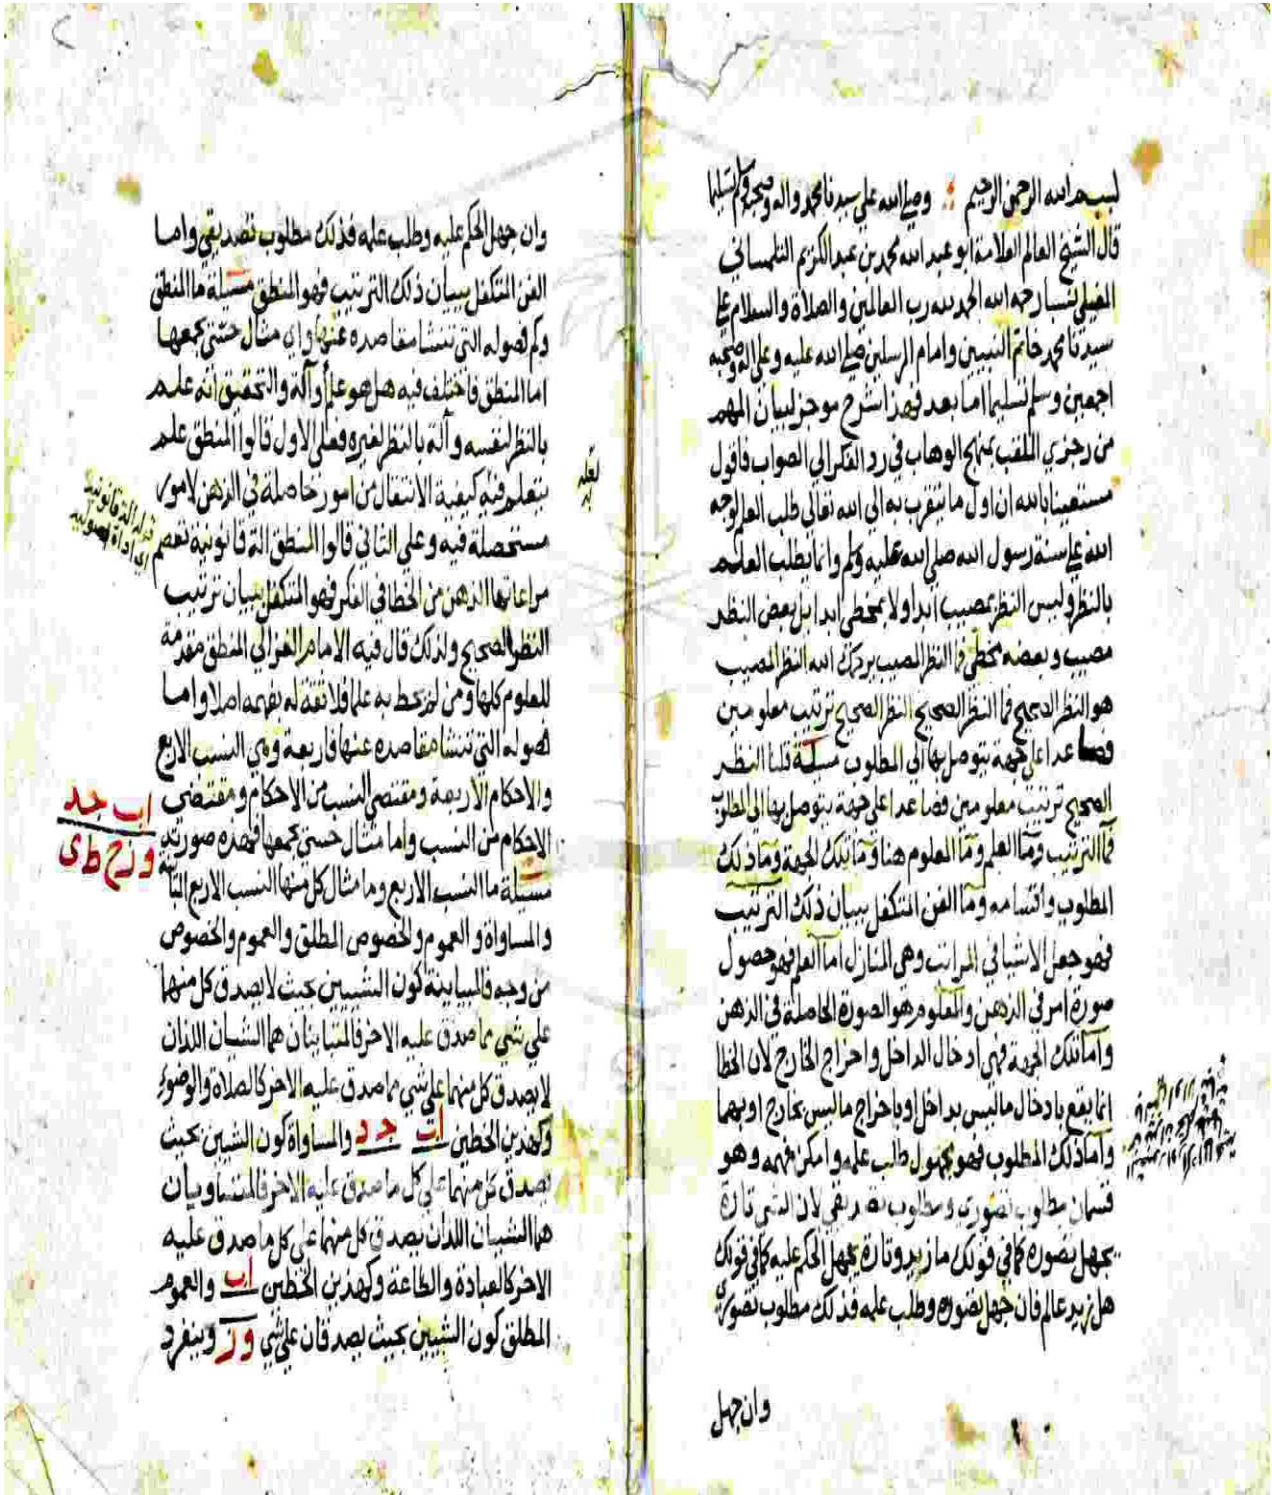 بسم الله الرحمن الرحيم وصلى الله على سيدنا محمد واله وصحبه وسلم تسليما
قال الشيخ العالم العلامة ابو عبد الله محمد بن عبد الكريم التلمساني
المغيلي نسبا رحمه الله الحمد لله رب العالمين والصلاة والسلام على
سيدنا محمد خاتم النبيين وامام المرسلين صلى الله عليه وعلى اله وصحبه
اجمعين وسلم تسليما اما بعد فهذا شرح موجز لبيان المهم
من رجزي الملقب بمنح الوهاب في رد الفكر الى الصواب فاقول
مستعينا بالله ان اول ما يتقرب به الى الله تعالى طلب العلم لوجه
الله على سنة رسول الله صلى الله عليه وسلم وانما يطلب العلم
بالنظر وليس النظر بمصيب ابدا ولا بمخطي ابدا بل بعض النظر
مصيب وبعضه مخطي فما النظر المصيب يرحمك الله النظر المصيب
هو النظر الصحيح فما النظر الصحيح النظر الصحيح ترتيب معلومين
فصاعدا على جهة يتوصل بها الى المطلوب مسيلة قلنا النظر
الصحيح ترتيب معلومين فصاعدا على جهة يتوصل بها الى المطلوب
فما الترتيب وما العلم وما المعلوم هنا وما تلك الجهة وما ذلك
المطلوب واقسامه وما الفن المتكفل ببيان ذلك الترتيب
فهو جعل الاشيا في المراتب وهي المنازل اما العلم فهو حصول
صورة امر في الذهن والمعلوم هو الصورة الحاصلة في الذهن
واما تلك الجهة فهي ادخال الداخل واخراج الخارج لان الخطا
انما يقع بادخال ما ليس بداخل او باخراج ما ليس بخارج او بهما
واما ذلك المطلوب فهو مجهول طلب علمه وامكن فهمه وهو
قسمان مطلوب تصوري ومطلوب تصديقي لان الشي تارة
يجهل تصوره كما في قولك ما زيد وتارة يجهل الحكم عليه كما في قولك
هل زيد عالم فان جهل تصوره وطلب علمه فذلك مطلوب تصوري
وان جهل
وان جهل الحكم عليه وطلب علمه فذلك مطلوب تصديقي واما
الفن المتكفل ببيان ذلك الترتيب فهو المنطق مسيلة ما المنطق
وكم فصوله التي تنشا مقاصده عنها واي مثال حسي يجمعها
اما المنطق فاختلف فيه هل هو علم او آلة والتحقيق انه علم
بالنظر لنفسه وآلة بالنظر لغيره فعلى الاول قالوا المنطق علم
يتعلم فيه كيفية الانتقال من امور حاصلة في الذهن لامور
مستحصلة فيه وعلى الثاني قالوا المنطق الة قانونية تعصم
مراعاتها الذهن من الخطا في الفكر فهو المتكفل ببيان ترتيب
النظر الصحيح ولذلك قال فيه الامام الغزالي المنطق مقدمة
للعلوم كلها ومن لم يحط به علما فلا ثقة له بفهمه اصلا واما
فصوله التي تنشا مقاصده عنها فاربعة وهي النسب الاربع
والاحكام الاربعة ومقتضى النسب من الاحكام ومقتضى
الاحكام من النسب واما مثال حسي يجمعها فهذه صورته
اب جد
وزح طى
مسيلة ما النسب الاربع وما مثال كل منها النسب الاربع
والمساواة والعموم والخصوص المطلق والعموم والخصوص
من وجه فالمباينة كون الشيين بحيث لا يصدق كل منهما
على شي مما صدق عليه الاخر فالمتباينان هما الشيان اللذان
لا يصدق كل منهما على شي مما صدق عليه الاخر كالصلاة والوضوء
وكهذين الخطين اب جد والمساواة كون الشيين بحيث
يصدق كل منهما على كل ما صدق عليه الاخر فالمتساويان
هما الشيان اللذان يصدق كل منهما على كل ما صدق عليه
الاخر كالعبادة والطاعة وكهذين الخطين اب والعموم
المطلق كون الشيين بحيث يصدقان على شي وز وينفرد
قوله الة قانونية